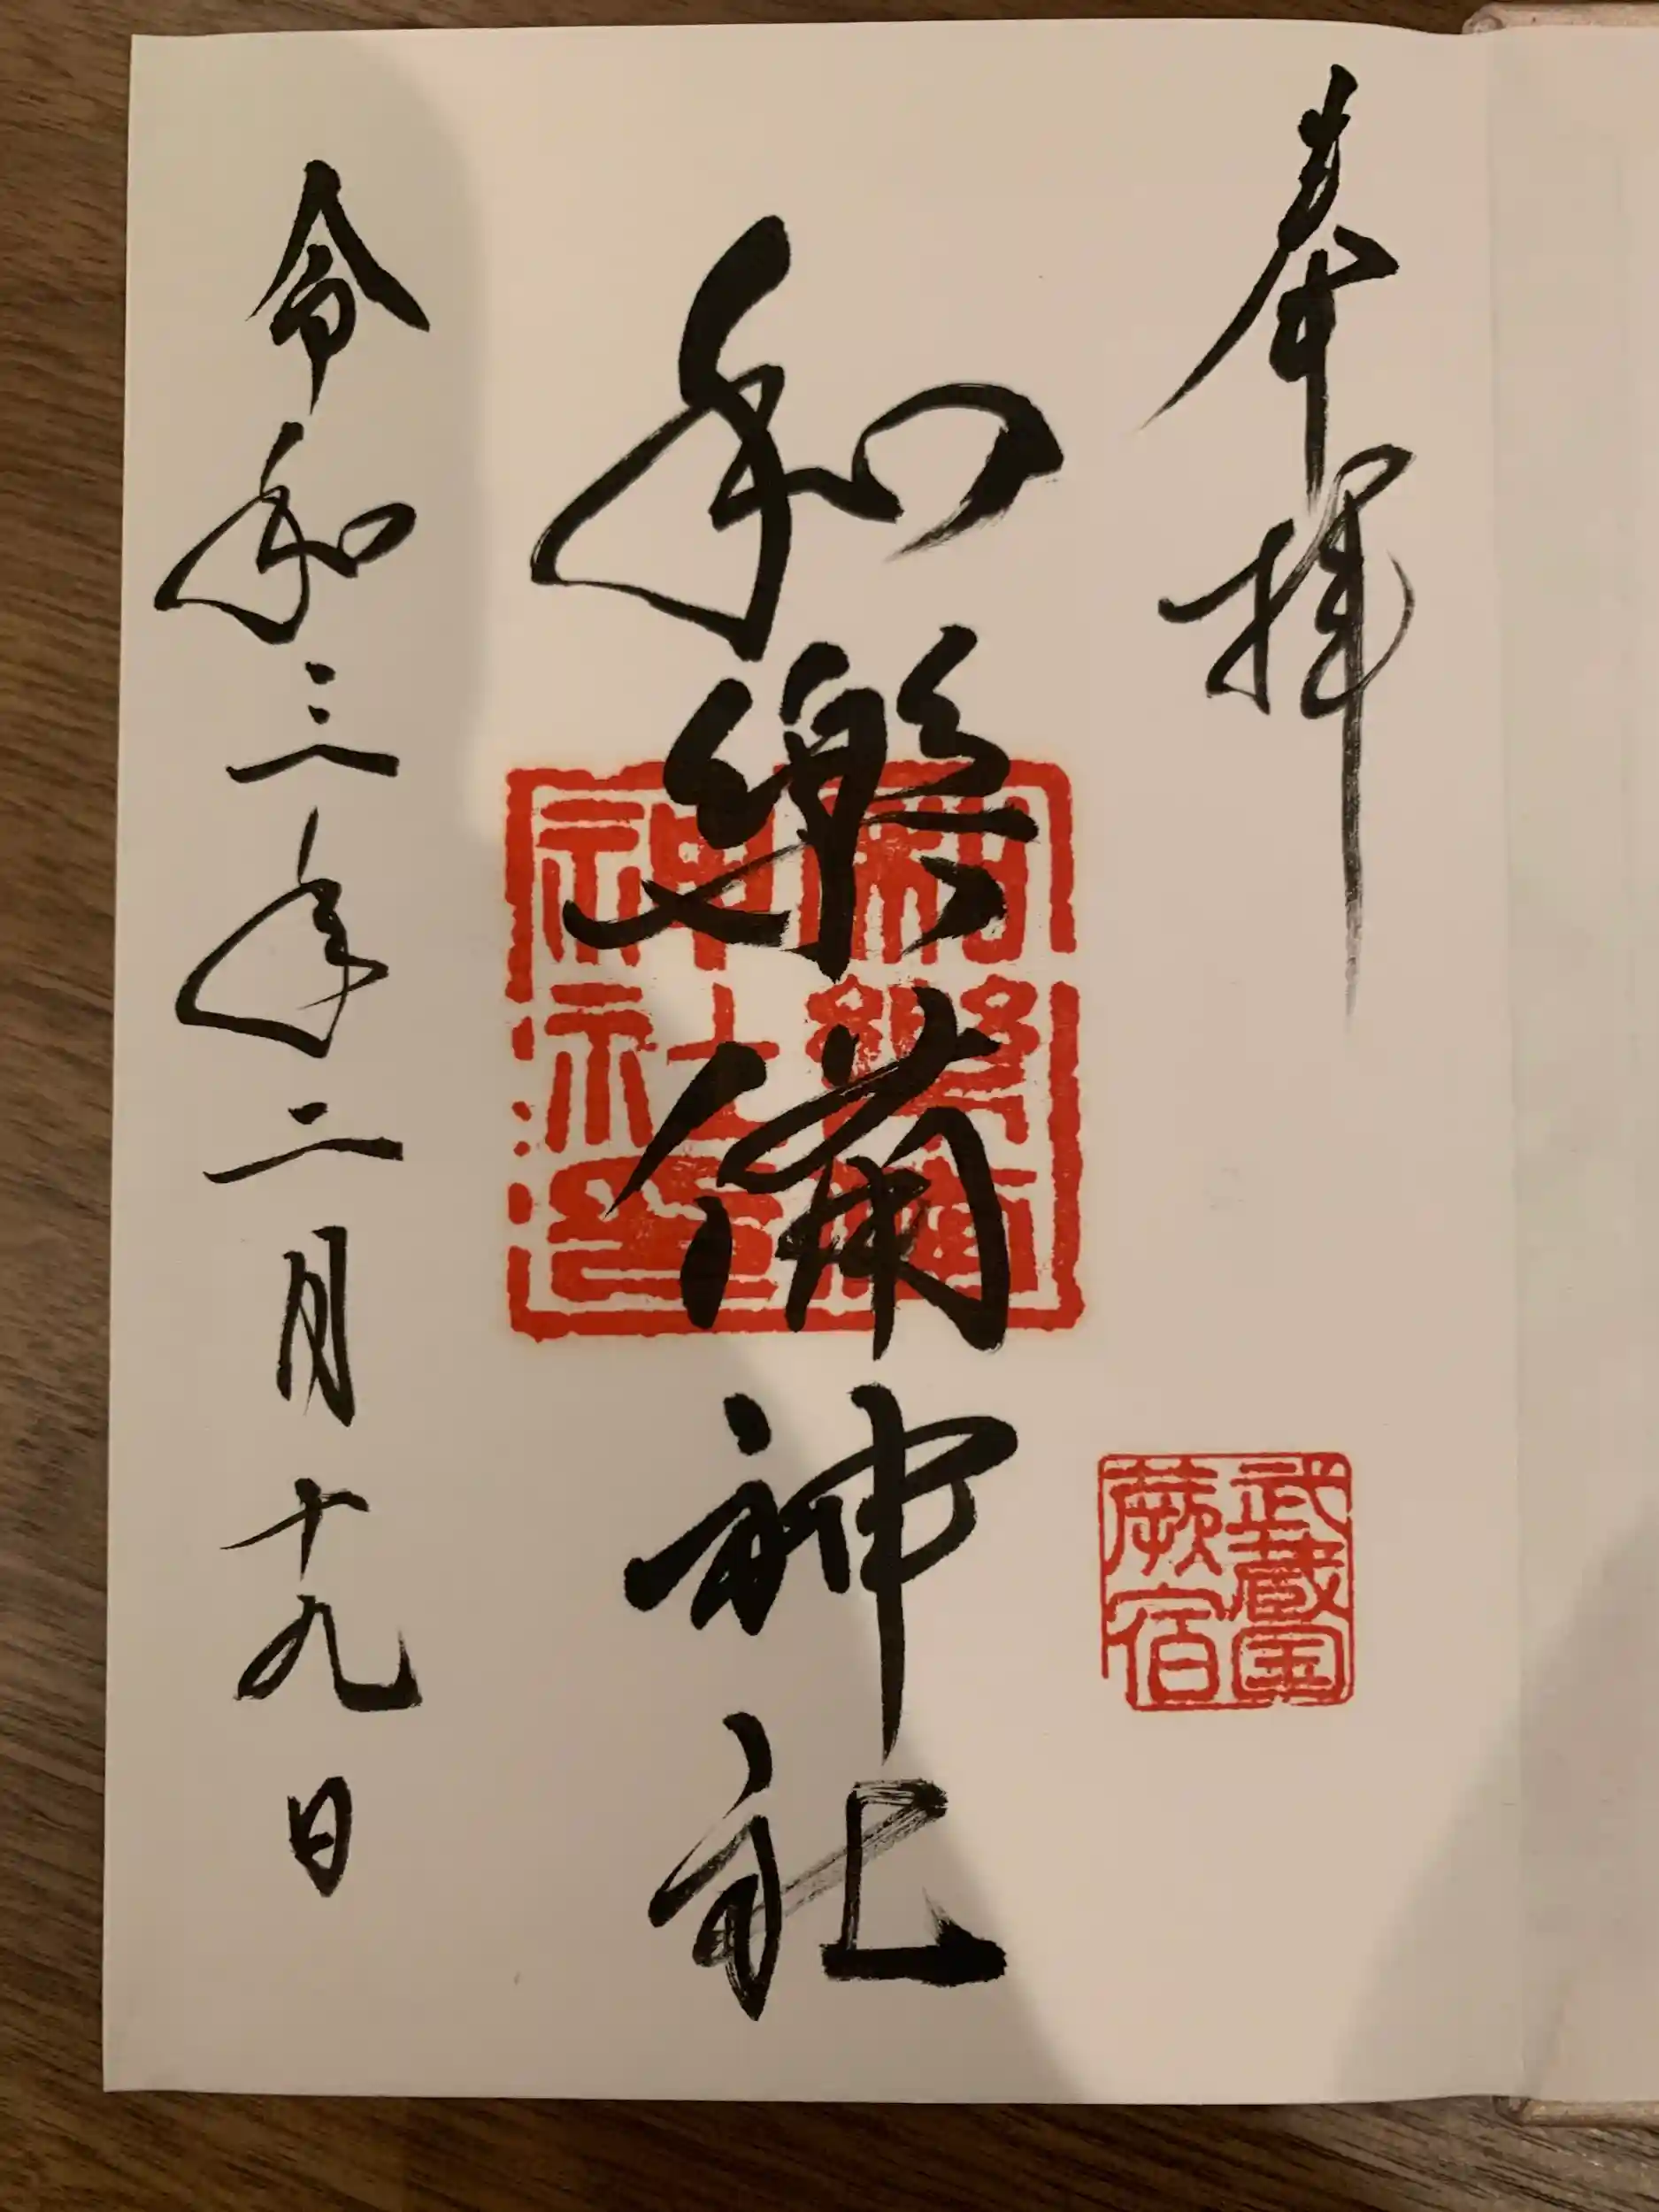 奉拝
武蔵国
蕨宿
和樂備神社
和樂備
神社
令和三年二月十九日